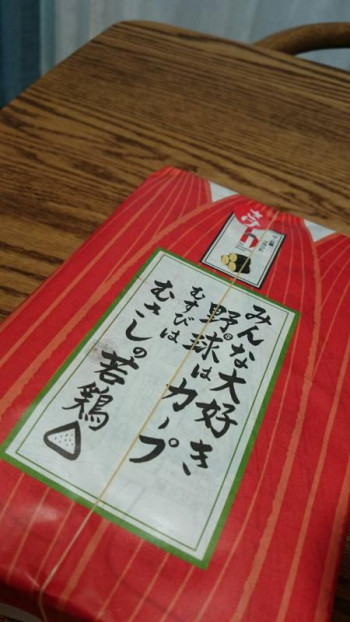 みんな大好き
野球はカープ
むすびは
むさしの若鶏